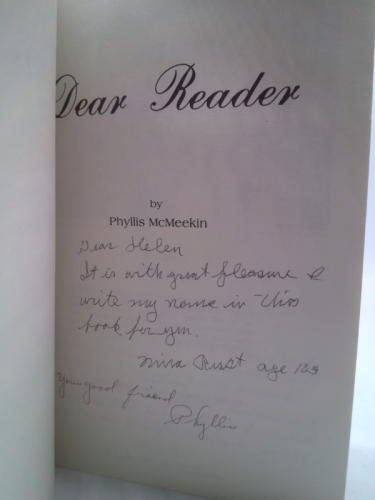 Dear Reader
by
Phyllis McMeekin
Dear Helen
It is with great pleasure I
write my name in this
book for you.
age
Your good friend
Phyllis